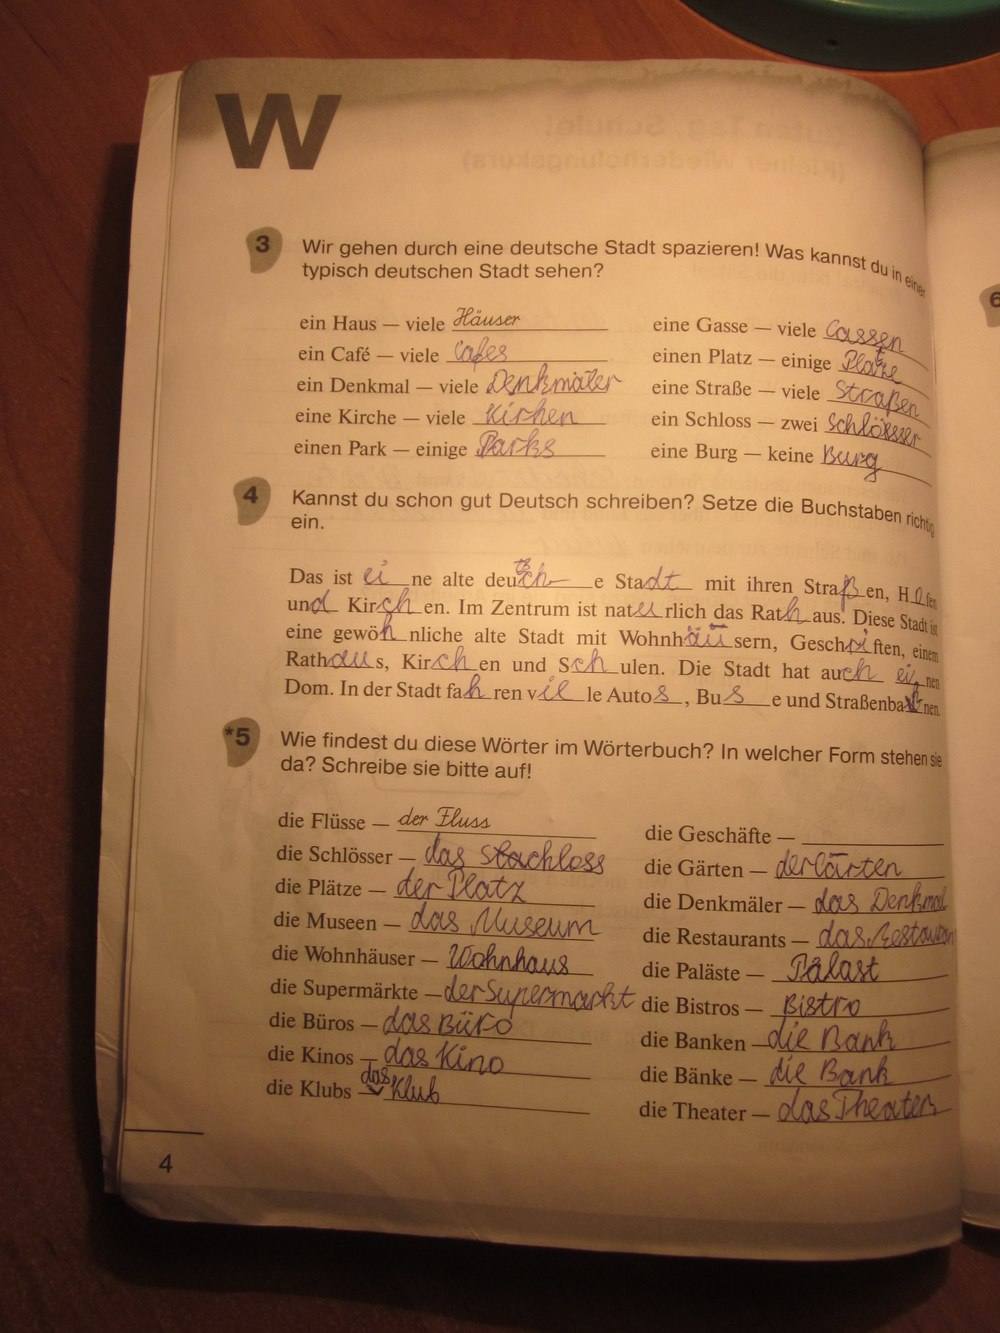 W
3 Wir gehen durch eine deutsche Stadt spazieren! Was kannst du in einer
typisch deutschen Stadt sehen?
ein Haus — viele Häuser
ein Café — viele Cafes
ein Denkmal — viele Denkmäler
eine Kirche — viele Kirhen
einen Park — einige Parks
eine Gasse — viele Gassen
einen Platz — einige Platze
eine Straße — viele Straßen
ein Schloss — zwei Schlösser
eine Burg — keine Burg
4 Kannst du schon gut Deutsch schreiben? Setze die Buchstaben richtig
ein.
Das ist ei ne alte deutsch e Stadt mit ihren Straßen, H fen
und Kirchen. Im Zentrum ist nat rlich das Rathaus. Diese Stadt ist
eine gewöhnliche alte Stadt mit Wohnhäusern, Gesch ften, einem
Rathaus, Kirchen und Schulen. Die Stadt hat auch ei nen
Dom. In der Stadt fahren v le Autos, Bus e und Straßenba nen.
*5 Wie findest du diese Wörter im Wörterbuch? In welcher Form stehen sie
da? Schreibe sie bitte auf!
die Flüsse — der Fluss
die Schlösser — das
die Plätze — der Platz
die Museen — das Museum
die Wohnhäuser — Wohnhaus
die Supermärkte — der Supermarkt
die Büros — das Büro
die Kinos — das Kino
die Klubs — das Klub
die Geschäfte —
die Gärten — der Gärten
die Denkmäler — das Denkmal
die Restaurants — das
die Paläste — Pälast
die Bistros — Bistro
die Banken — die Bank
die Bänke — die Bank
die Theater — das Theater
4
6